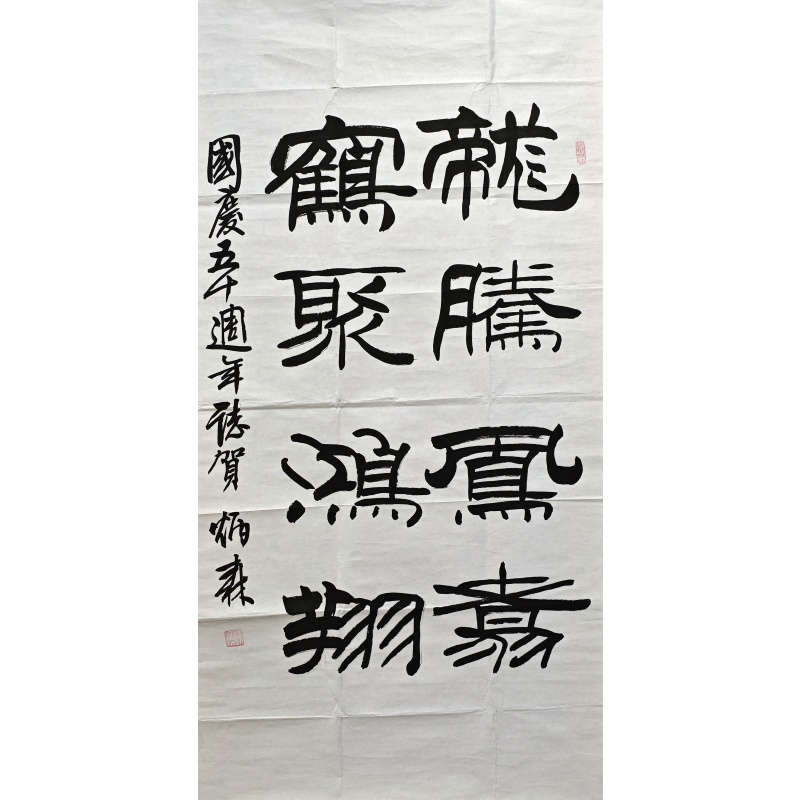 龍騰鳳翥
鶴聚鴻翔
國慶五十週年誌賀 炳森